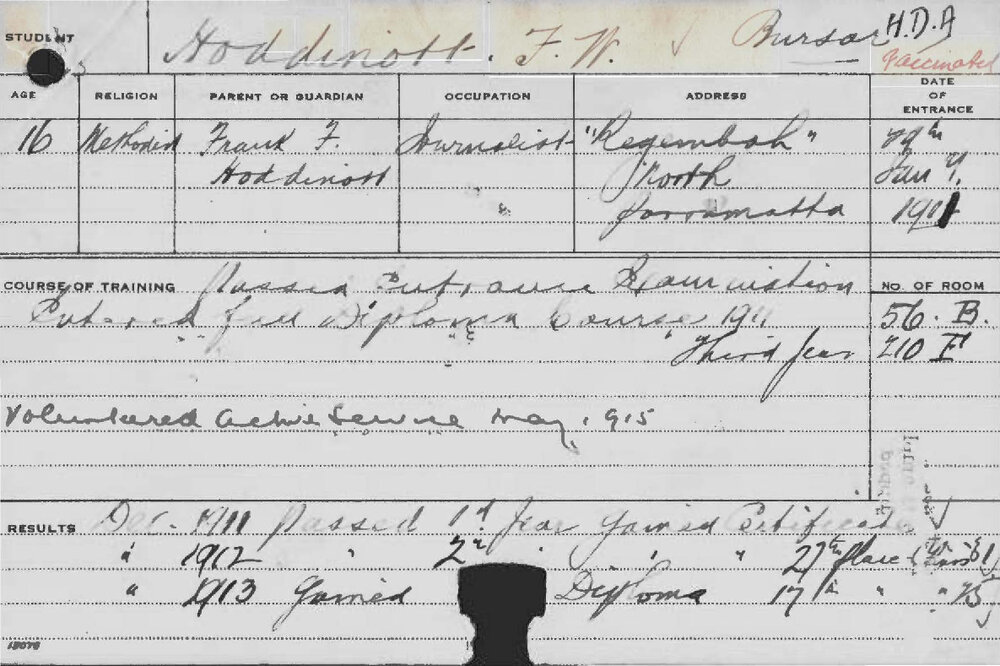 STUDENT Hoddinott. F. W. Bursar H.D.A
Vaccinated
AGE RELIGION PARENT OR GUARDIAN OCCUPATION ADDRESS DATE OF ENTRANCE
16 Methodist Frank F. Journalist "Regembah"
Hoddinott North Jan
Parramatta 1911
COURSE OF TRAINING Passed Entrance Examination NO. OF ROOM
Entered full Diploma Course 1911 56. B.
" " " Third Year 210 F
Volunteered active Service May 1915
RESULTS Dec. 1911 Passed 1st Year Gained Certificate
" 1912 " 2nd " " " 27th place
" 1913 Gained Diploma 17th " "